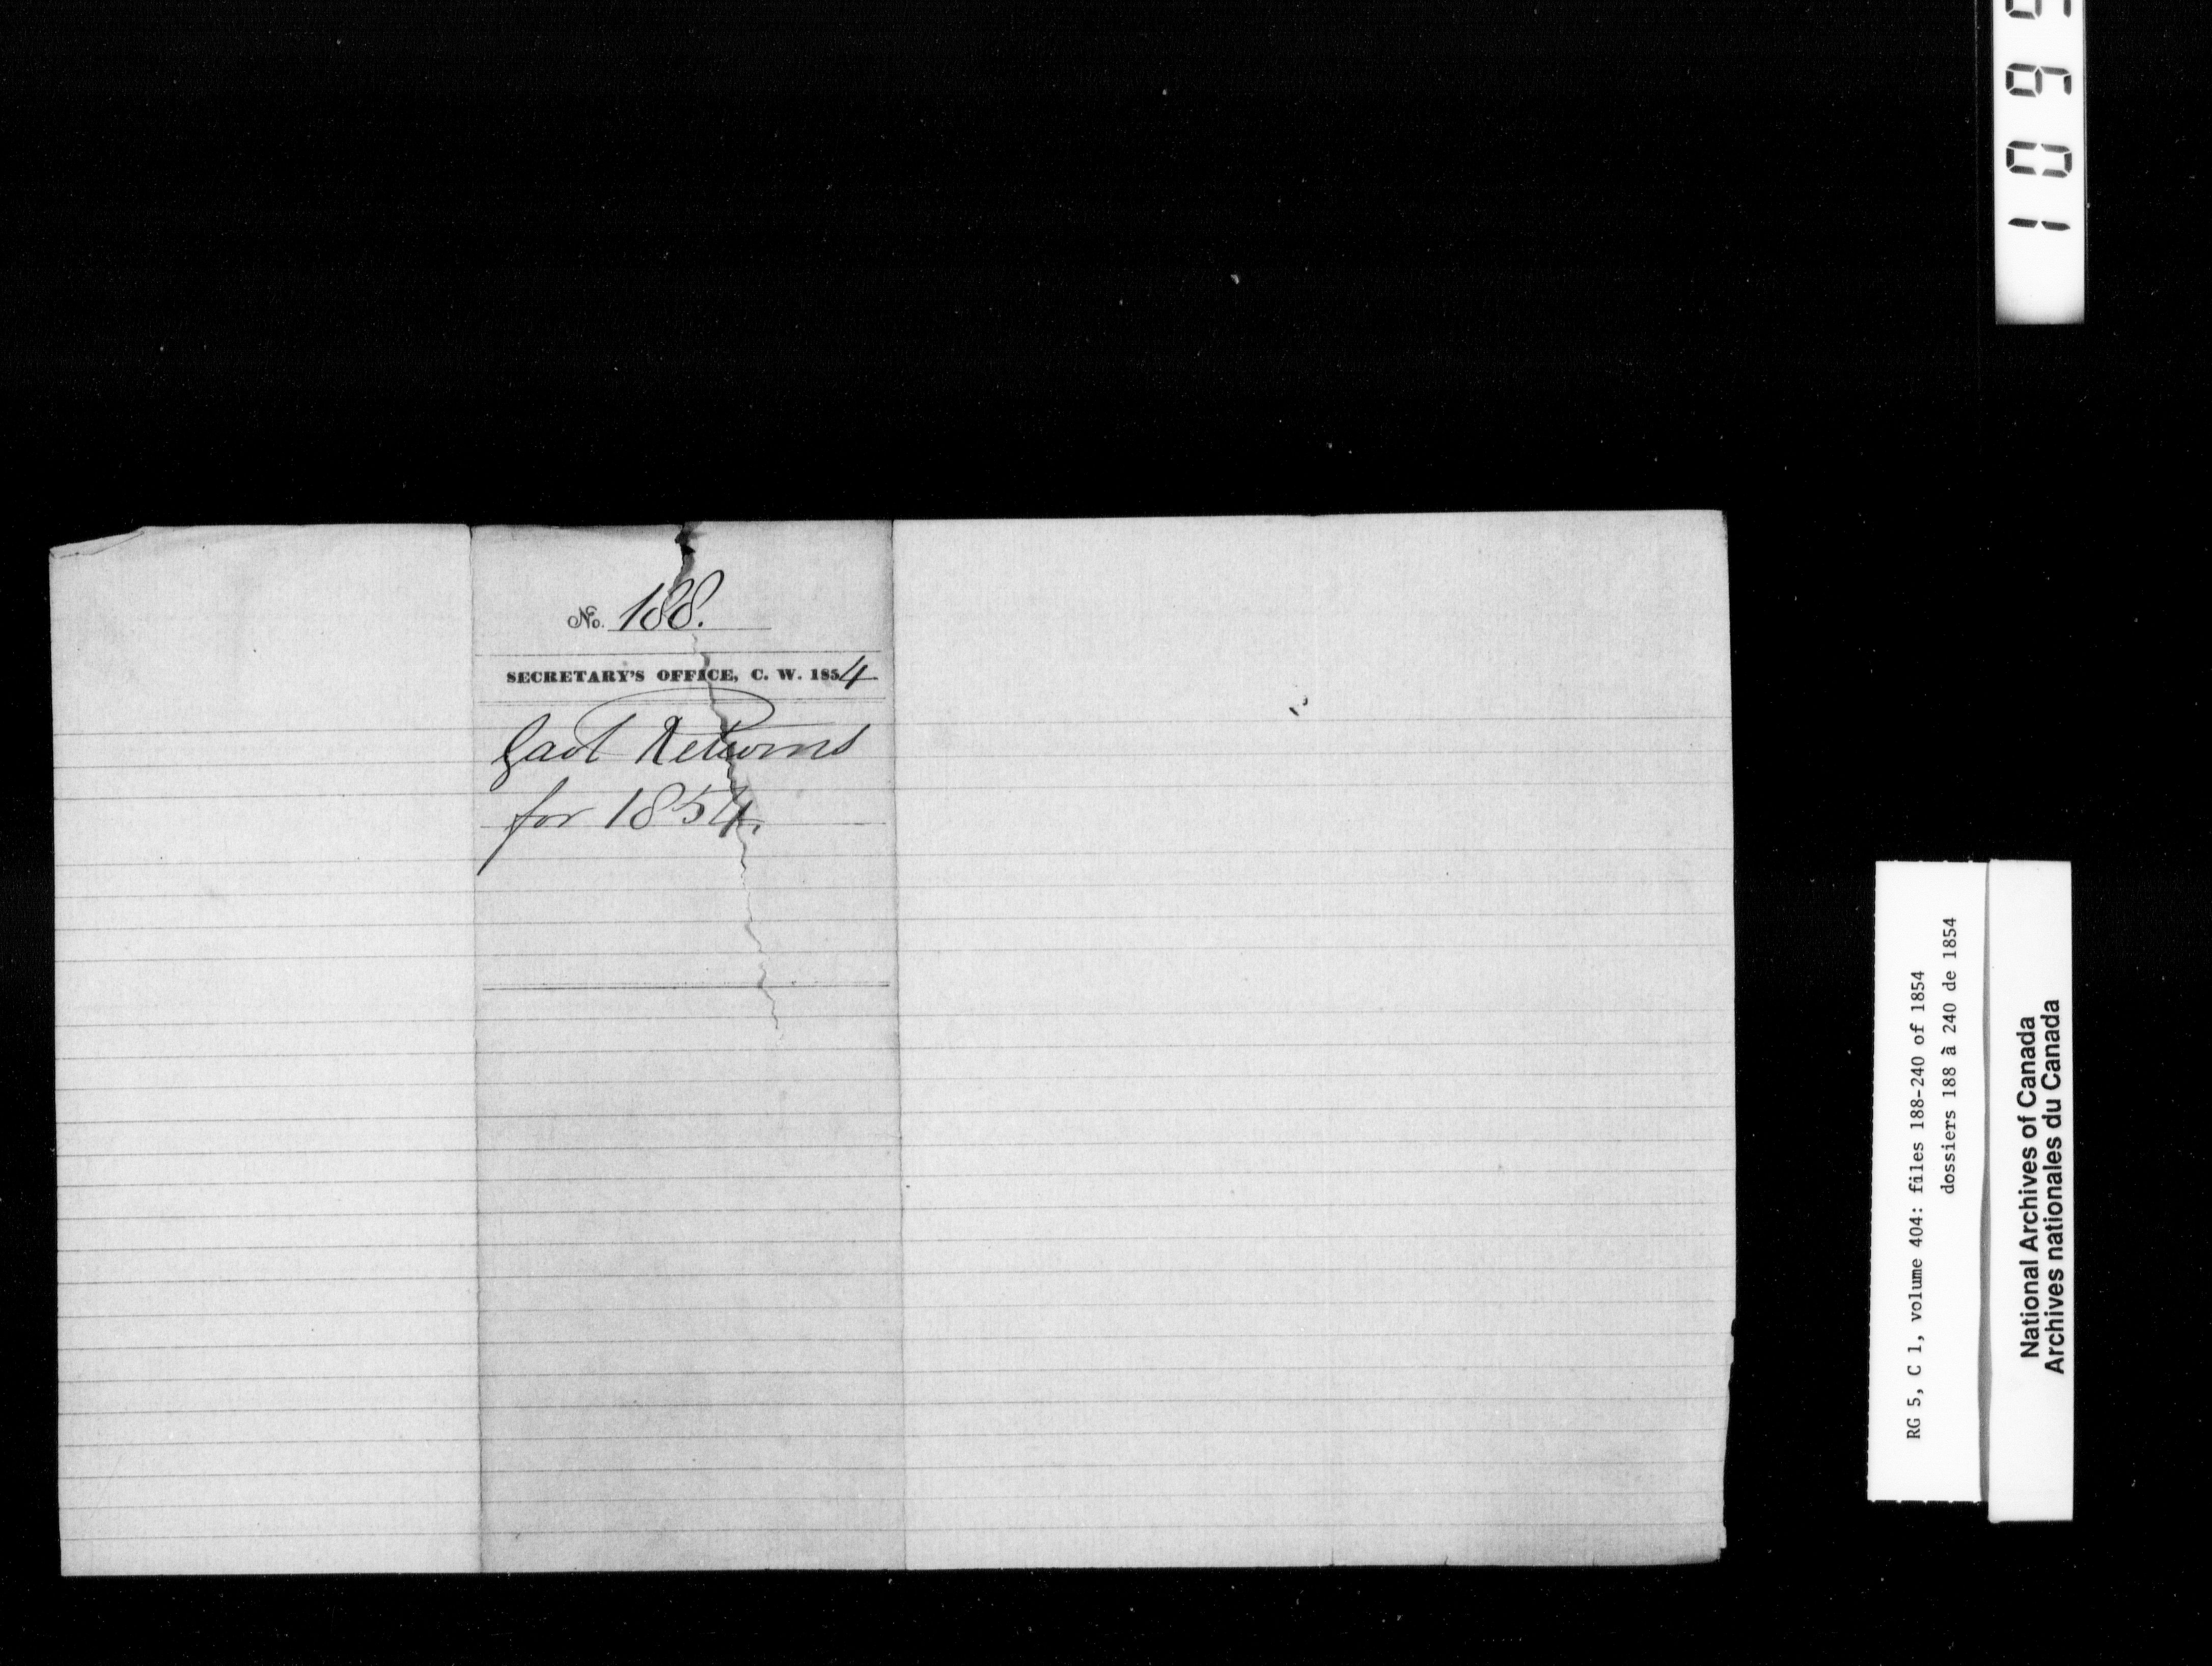 No. 188.
SECRETARY'S OFFICE, C. W. 1854
Gaol Returns
for 1854.
RG 5, C 1, volume 404: files 188-240 of 1854
dossiers 188 à 240 de 1854
National Archives of Canada
Archives nationales du Canada
1 0 9